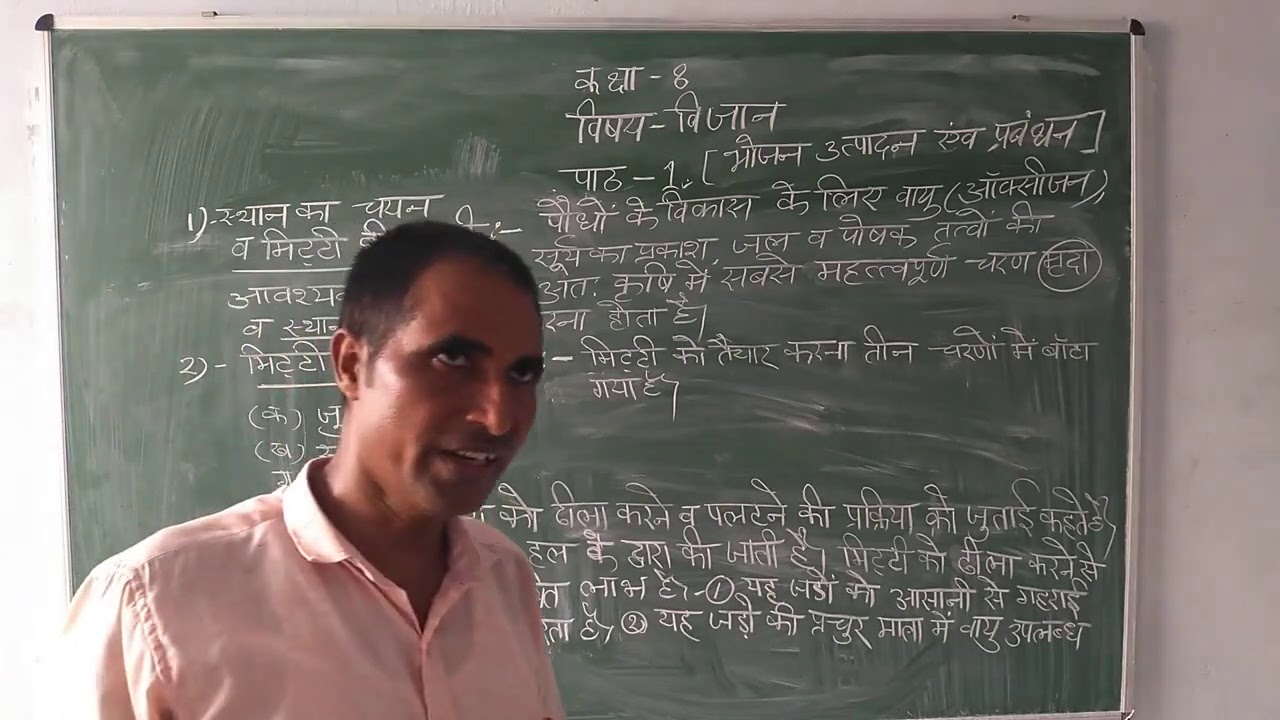 कक्षा - 8
विषय - विज्ञान
पाठ - 1. [ भोजन उत्पादन एंव प्रबंधन ]
1) - स्थान का चयन
व मिट्टी :- पौधों के विकास के लिए वायु (ऑक्सीजन),
सूर्य का प्रकाश, जल व पोषक तत्वों की
अतः कृषि में सबसे महत्त्वपूर्ण चरण मृदा
व स्थान रना होता है।
2) - मिट्टी - मिट्टी को तैयार करना तीन चरणों में बाँटा
गया है।
(क) जु
(ख)
को ढीला करने व पलटने की प्रक्रिया को जुताई कहते है,
हल के द्वारा की जाती है। मिट्टी को ढीला करने से
लाभ है - ① यह जड़ों को आसानी से गहराई
ता है, ② यह जड़ो को प्रचुर माता में वायु उपलब्ध